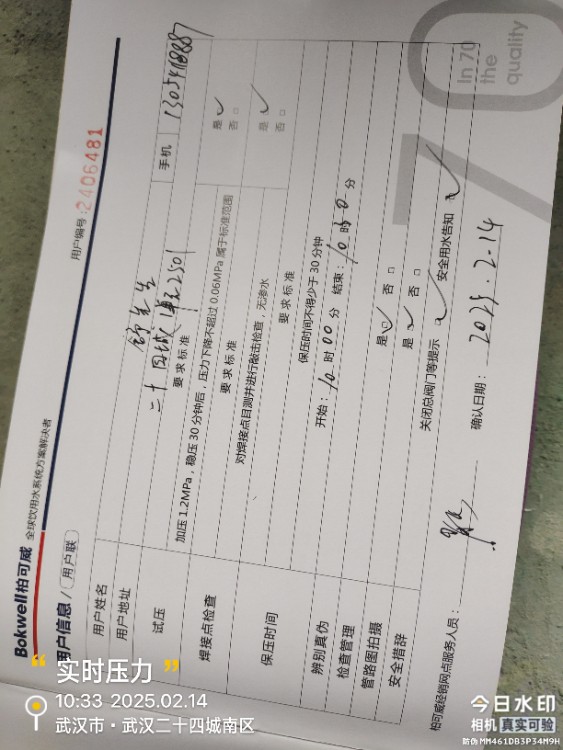 Bokwell柏可威 全球饮用水系统方案解决者
用户信息 / 用户联
用户编号:2406481
用户姓名 舒先生 手机 13054118887
用户地址 二十四城 2501
试压 要求标准
加压1.2MPa，稳压30分钟后，压力下降不超过0.06MPa属于标准范围 是 ✓ 否 □
焊接点检查 要求标准
对焊接点目测并进行敲击检查，无渗水 是 ✓ 否 □
保压时间 要求标准
保压时间不得少于30分钟
开始：10 时 00 分 结束：10 时 30 分
辨别真伪 是 ✓ 否 □
检查管理 是 ✓ 否 □
管路图拍摄
安全措辞 关闭总阀门等提示 ✓ 安全用水告知 ✓
柏可威经销网点服务人员：
确认日期：2025.2.14
In 70
the
quality
70
“实时压力”
10:33 2025.02.14
武汉市·武汉二十四城南区
今日水印
相机 真实可验
防伪 MM461DB3P34M9H